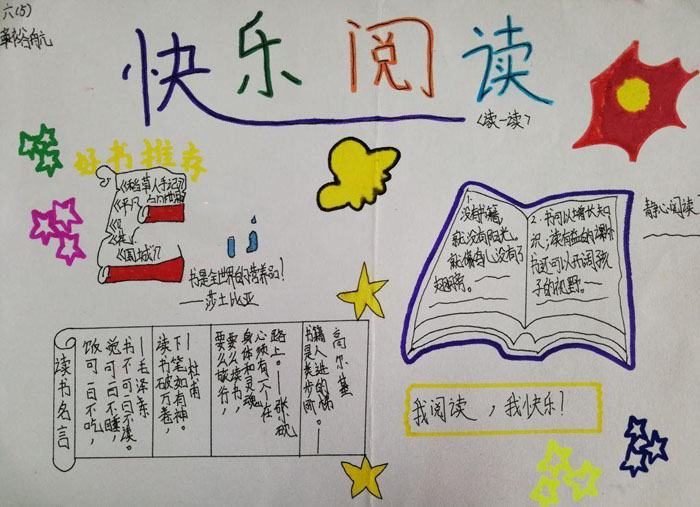 六(5)
快乐阅读
<读一读>
好书推荐
《稻草人手记》
《平凡的世界》
《围城》
书是全世界的营养品!
——莎士比亚
1.
没有书籍,
就没有阳光,
就像身心没有了
翅膀。
2.书可以增长知
识,读有益的课外
书还可以开阔孩
子的视野。
静心阅读
读书名言
饭可一日不吃,
觉可一日不睡,
书不可一日不读。
—毛泽东
读书破万卷,
下笔如有神。
—杜甫
要么旅行,
要么读书,
身体和灵魂
必须有一个在
路上。——张砚
书籍是
人类进
步的阶梯。——
高尔基
我阅读,我快乐!